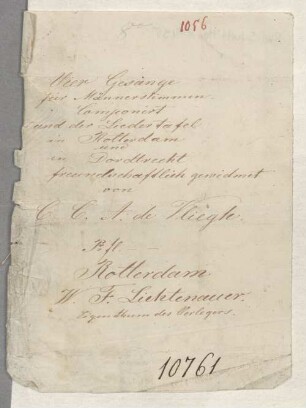 1056
Vier Gesänge
für Männerstimmen
Componirt
und der Liedertafel
in Rotterdam
und
in Dordtrecht
freundschaftlich gewidmet
von
C. C. A. de Vliegh.
Pr. fl.
Rotterdam
W. F. Lichtenauer.
Eigenthum des Verlegers.
10761